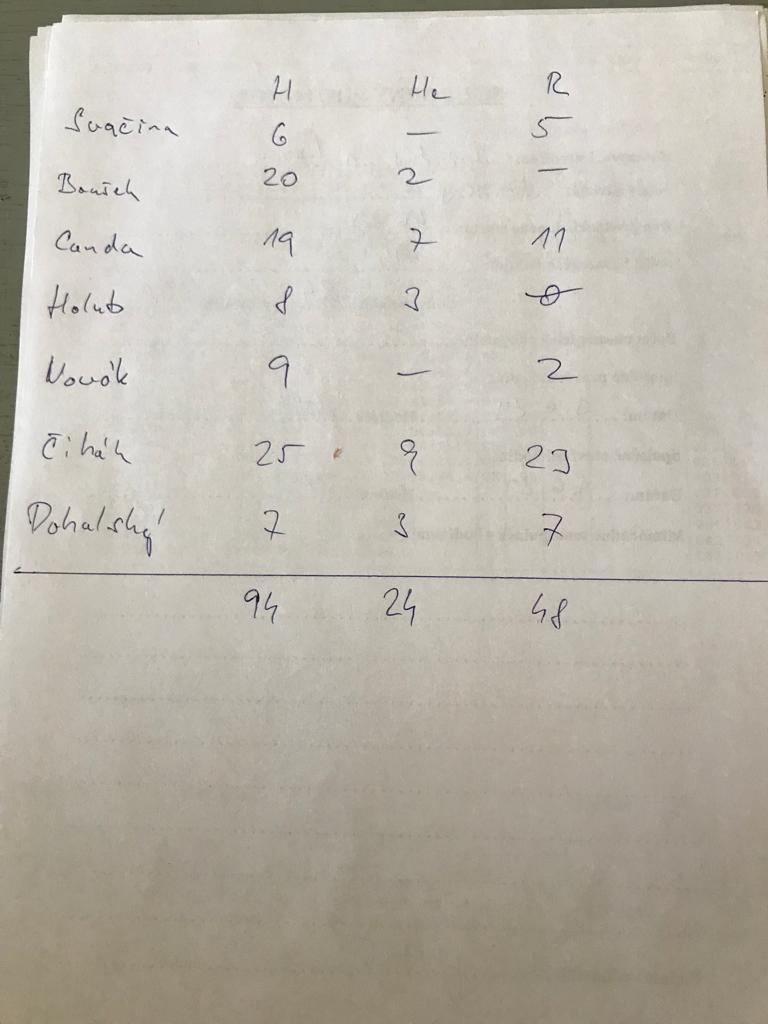 H He R
Svačina 6 — 5
Boušek 20 2 —
Canda 19 7 11
Holub 8 3 0
Novák 9 — 2
Čihák 25 9 23
Dohalský 7 3 7
94 24 48